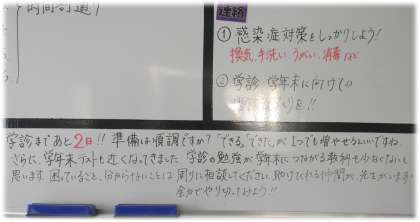 時間割通り
連絡
① 感染症対策をしっかりしよう！
換気、手洗い、うがい、消毒 など
② 学診、学年末に向けての
を!!
学診まであと2日!! 準備は順調ですか？「できる」「できた」が1つでも増やせるといいですね。
さらに、学年末テストも近くなってきました。学診の勉強が学年末につながる教科も少なくないと
思います。困っていること、分からないことは周りに相談してください。助けてくれる仲間が、先生がいます。
全力でやり切ってみよう!!